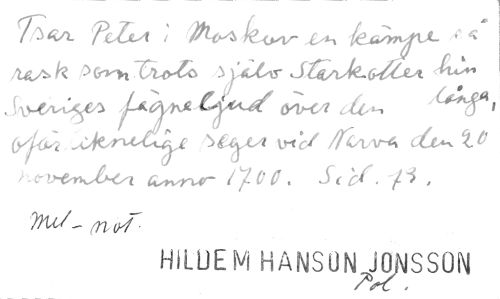 Tsar Peter i Moskov en kämpe så
rask som trots själv Starkotter hin
Sveriges fägneljud över den långa,
oförliknelige seger vid Narva den 20
november anno 1700. Sid. 73.
mel-not.
HILDEM HANSON JONSSON
Pol.